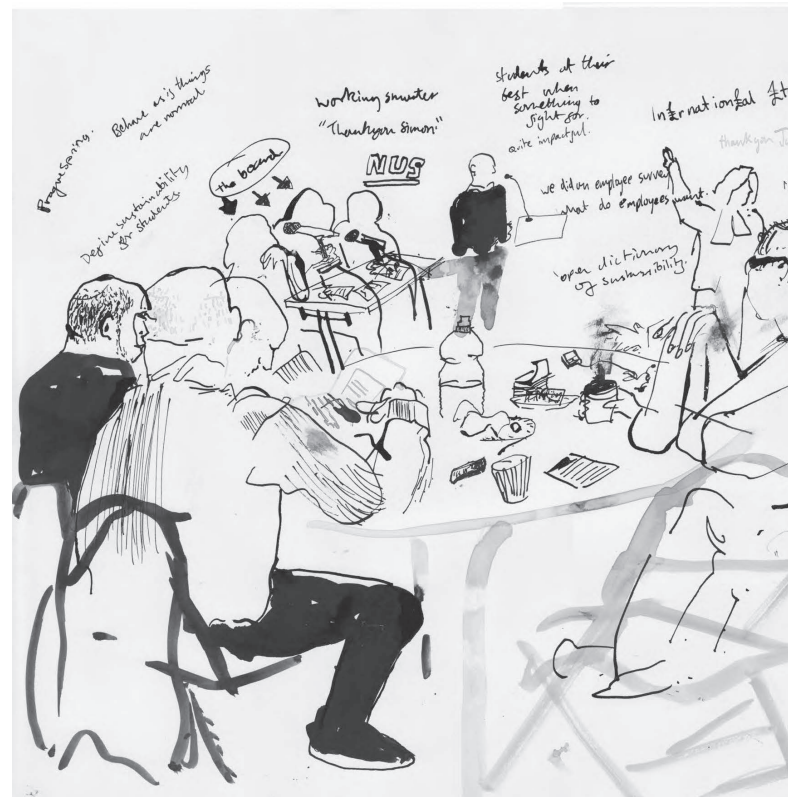 Behave as if things
are normal
Define sustainability
for students
the board
working smarter
"Thankyou Simon"
NUS
students at their
best when
something to
fight for.
quite impactful.
Int£rnation£al £t
thankyou
we did an employee survey
what do employees want.
'open dictionary
of sustainability'